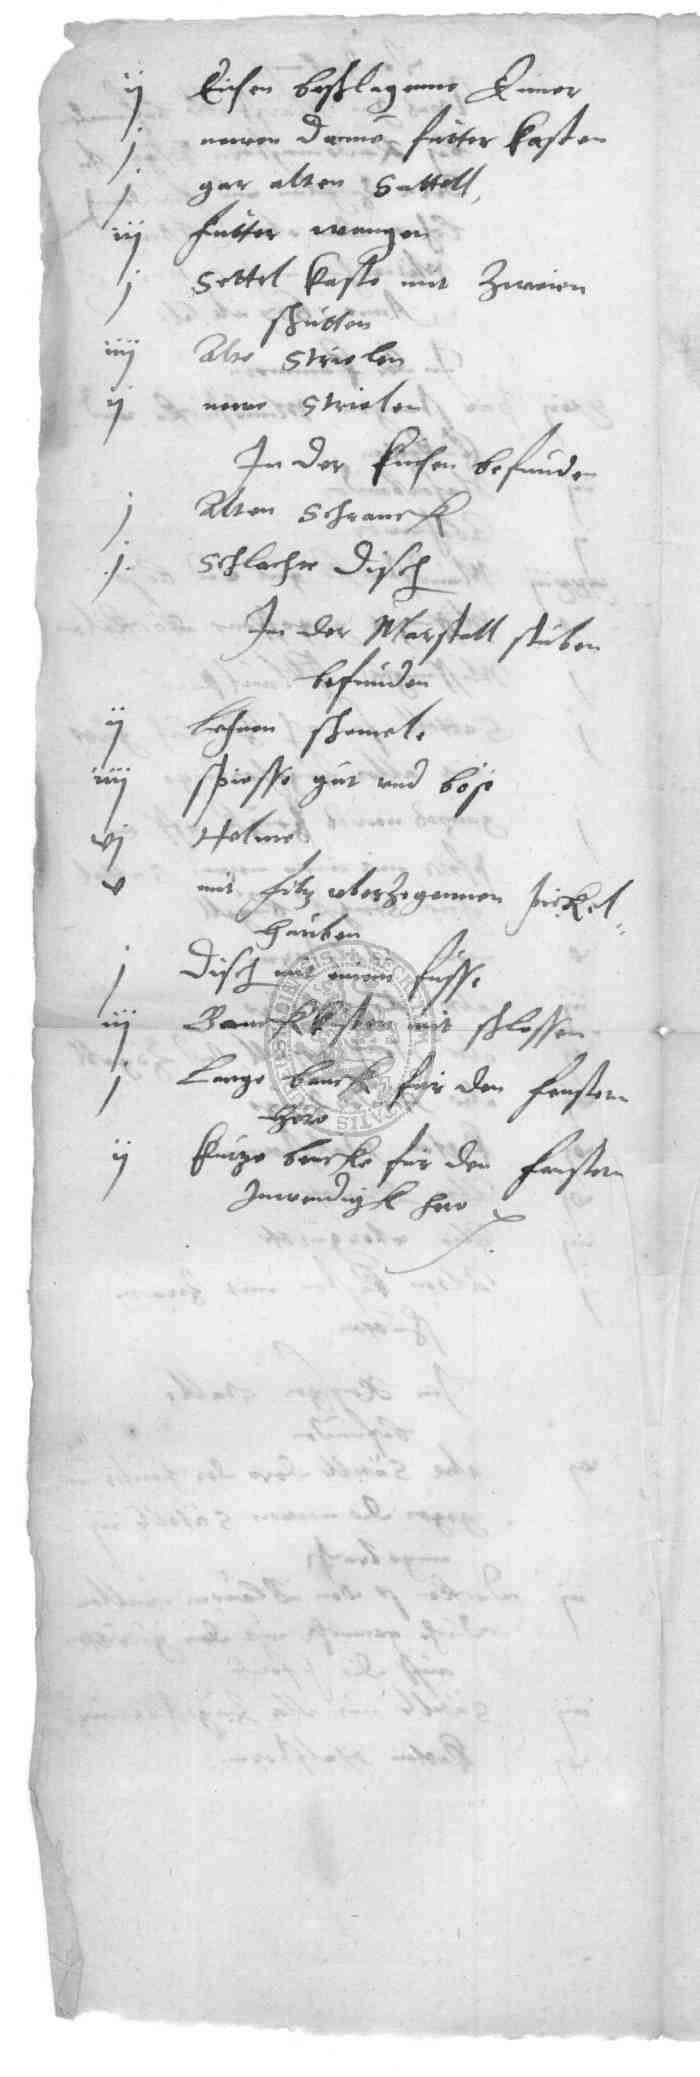 ij Eisen beschlagenne Eimer
j newen Danne futter kasten
j gar alten Sattell
iij futter wangen
j Settel kaste mit zweien
schutten
iiij Alte Strielen
ij newe Strielen
In der kuchen befunden
j Alten Schranck
j Schlachte Disch
In der Marstall stuben
befunden
ij Lehnen schemel
iiij spiesse gut und böse
vj Helme
v mit filtz uberzogennen pickel-
hauben
j Disch mit einem fusse
iij Banckkasten mit schlossen
j Lange banck fur den fenstern
hero
ij kurtze bencke fur den fenstern
Inwendigk hero